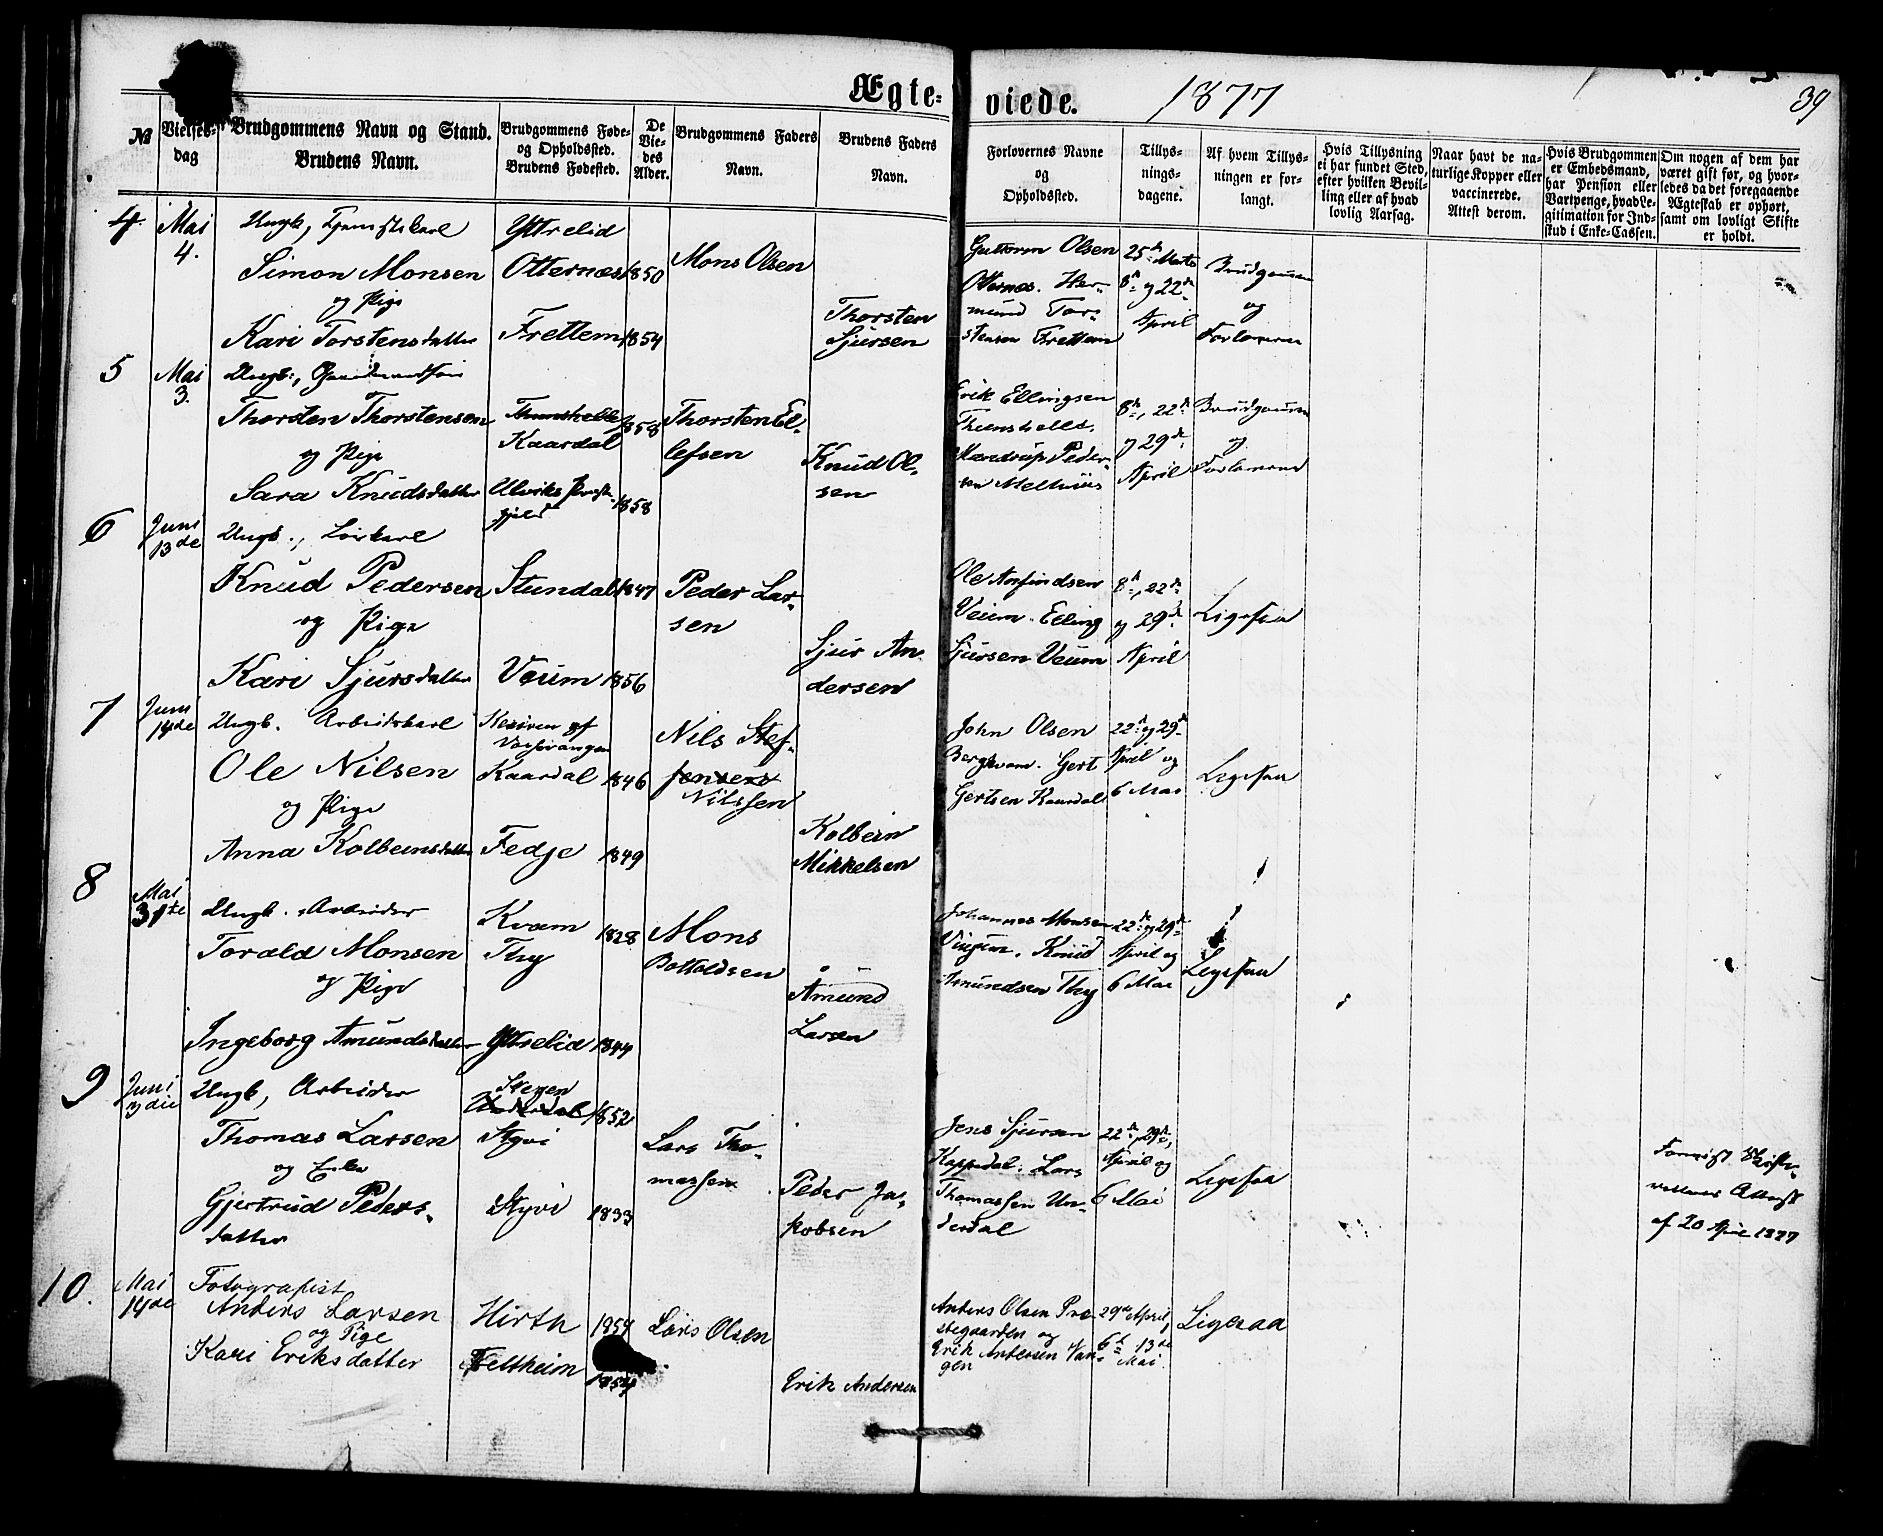 Ægte-
viede.
1877
39
№
Vielses-
dag
Brudgommens Navn og Stand.
Brudens Navn.
Brudgommens Føde-
og Opholdssted.
Brudens Fødested.
De
Vie-
des
Alder.
Brudgommens Faders
Navn.
Brudens Faders
Navn.
Forlovernes Navne
og
Opholdssted.
Tillys-
nings-
dagene.
Af hvem Tillys-
ningen er for-
langt.
Hvis Tillysning
ei har fundet Sted,
efter hvilken Bevil-
ling eller af hvad
lovlig Aarsag.
Naar havt de na-
turlige Kopper eller
vaccinerede.
Attest derom.
Hvis Brudgommen
er Embedsmand,
har Pension eller
Vartpenge, hvad Le-
gitimation for Ind-
skud i Enke-Cassen.
Om nogen af dem har
været gift før, og hvor-
ledes da det foregaaende
Ægteskab er ophørt,
samt om lovligt Skifte
er holdt.
4.
Mai
4.
Ungk, Tjenestekarl
Simon Monsen
og Pige
Kari Torstensdatter
Yttrelid
Otternæs
Frettem
1850
1854
Mons Olsen
Thorsten
Sjursen
Guttorm Olsen
Otternæs. Her-
mund Tor-
stensen Frettem
25de Marts
8de og 22de
April
Brudgommen
og
Forloverne
5
Mai
3.
Ungk., Gaardmandssøn
Thorsten Thorstensen
og Pige
Sara Knudsdatter
Kaardal
Ulviks Præste-
gjeld
1858
1858
Thorsten El-
lefsen
Knud Ol-
sen
Erik Ellingsen
Peder-
sen Melhuus
8de, 22de
og 29de
April
Brudgommen
og
Forloverne
6
Juni
13de
Ungk., Løskarl
Knud Pedersen
og Pige
Kari Sjursdatter
Stundal
Veum
1847
1856
Peder Lar-
sen
Sjur An
dersen
Ole Anfindsen
Veium. Elling
Sjursen Veum
8de, 22de
og 29de
April
Ligesaa
7
Juni
14de
Ungk. Arbeidskarl
Ole Nilsen
og Pige
Anna Kolbeinsdatter
Vossevangen
Kaardal
Fedje
1846
1849
Nils Stef-
fensens
Nilssen
Kolbein
Mikkelsen
John Olsen
Bergkvam. Gert
Gertsen Kaardal
22de og 29de
April og
6 Mai
Ligesaa
8
Mai
31te
Ungk. Arbeider
Torald Monsen
og Pige
Ingeborg Amundsdatter
Kvam
Thy
Yttrelid
1828
1844
Mons
Botholdsen
Amund
Larsen
Johannes Monsen
Vinjum. Knud
Amundsen Thy
22de og 29de
April og
6 Mai
Ligesaa
9
Juni
Ungk, Arbeider
Thomas Larsen
og Enke
Gjertrud Peders-
datter
Stegen
Underdal
Styvi
Styvi
1852
1833
Lars Tho-
massen
Peder Ja-
kobsen
Jens Sjursen
Kappadal. Lars
Thomassen Un-
derdal
22de, 29de,
April og
6 Mai
Ligesaa
Forevist Skifte-
rettens Attest
af 20 April 1877
10.
Mai
14de
Fotografist
Anders Larsen
og Pige
Kari Eriksdatter
Hirth
Feltheim
1854
1854
Lars Olsen
Erik Andersen
Anders Olsen Præ
stegaarden og
Erik Andersen Van-
gen
29de April,
6te 13de
Mai.
Ligesaa